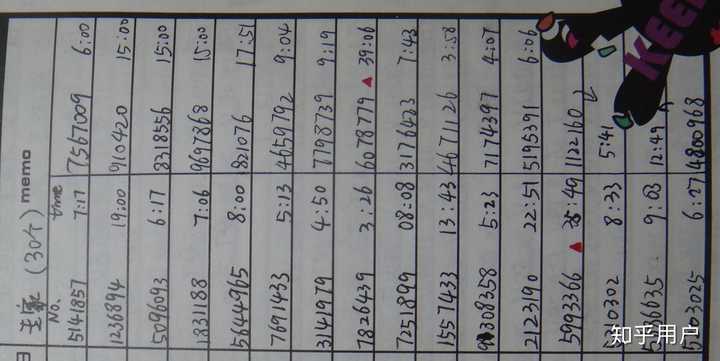 主家 (30个) memo
No. time
5141857 7:17 7567009 6:00
1236894 19:00 910420 15:00
5096093 6:17 8318556 15:00
1831188 7:06 9697868 15:00
5644965 8:00 821076 17:51
7691433 5:13 4659792 9:04
3141979 4:50 7798739 9:19
7826439 3:26 6078779 ▲ 39:06
7251899 08:08 3176423 7:43
1557433 13:43 4671126 3:58
308358 5:23 7174397 4:07
2123190 22:51 5195391 6:06
5993366 ▲ 35:49 1122160
8:33 5:41
9:03 12:49
6:27 4800968
KEEP
知乎用户